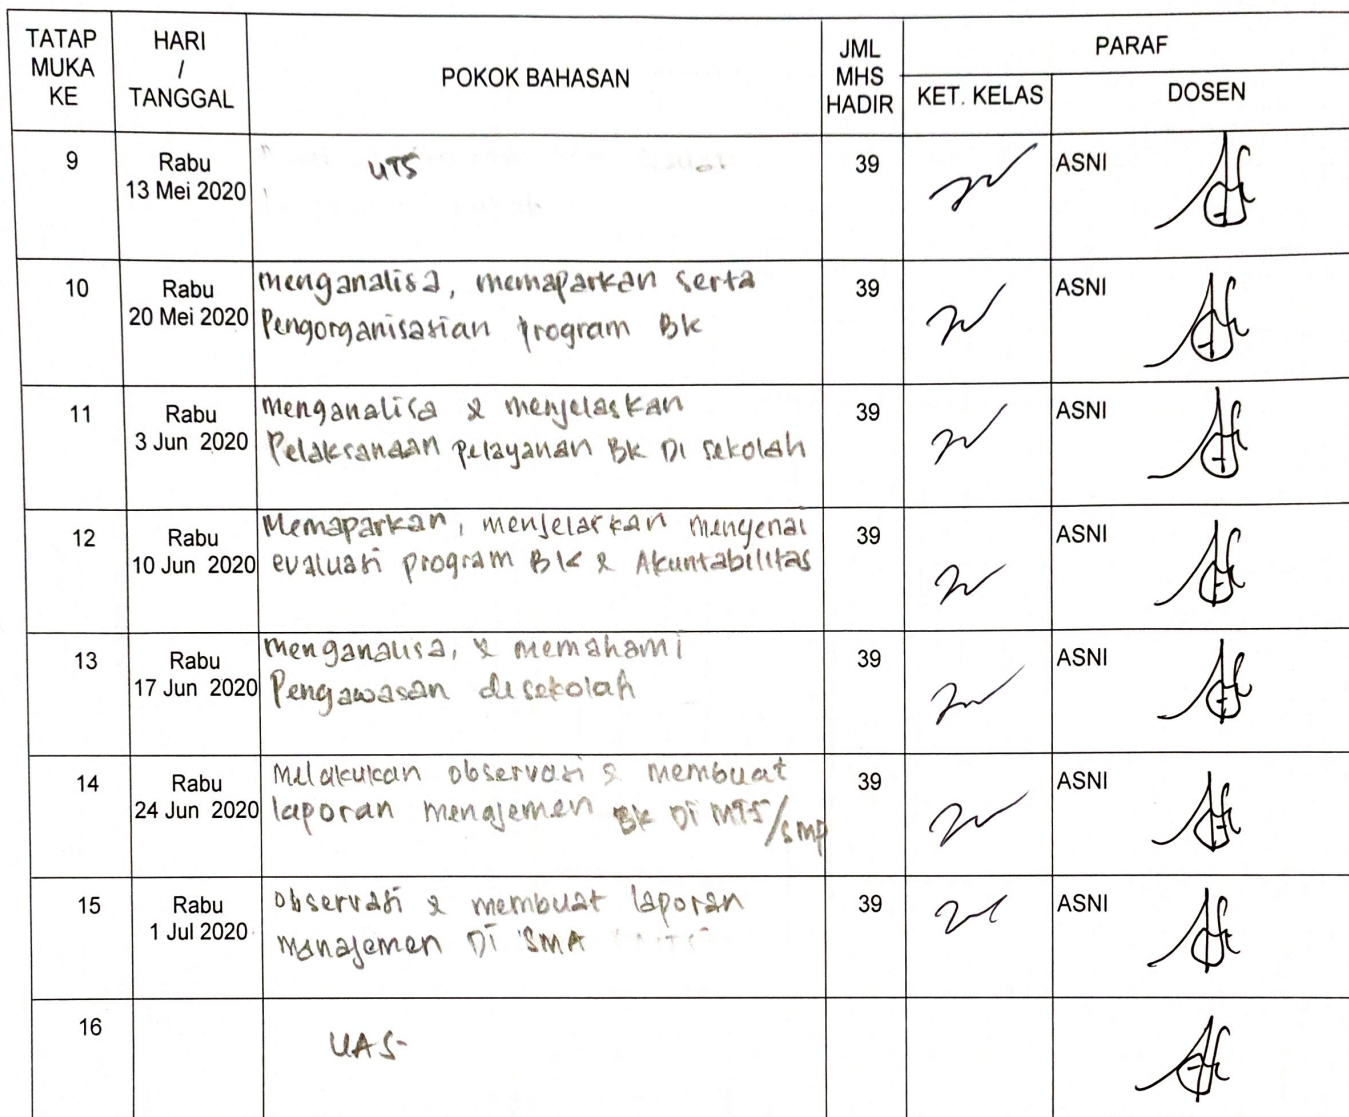 TATAP
MUKA
KE
HARI
/
TANGGAL
POKOK BAHASAN
JML
MHS
HADIR
PARAF
KET. KELAS
DOSEN
9
Rabu
13 Mei 2020
UTS
39
ASNI
10
Rabu
20 Mei 2020
menganalisa, memaparkan serta
Pengorganisasian program BK
39
ASNI
11
Rabu
3 Jun 2020
menganalisa & menjelaskan
Pelaksanaan pelayanan BK Di sekolah
39
ASNI
12
Rabu
10 Jun 2020
Memaparkan, menjelaskan mengenai
evaluasi program BK & Akuntabilitas
39
ASNI
13
Rabu
17 Jun 2020
menganalisa, & memahami
Pengawasan di sekolah
39
ASNI
14
Rabu
24 Jun 2020
Melakukan observasi & membuat
laporan menajemen BK Di MTS/SMP
39
ASNI
15
Rabu
1 Jul 2020
observasi & membuat laporan
manajemen Di SMA
39
ASNI
16
UAS-